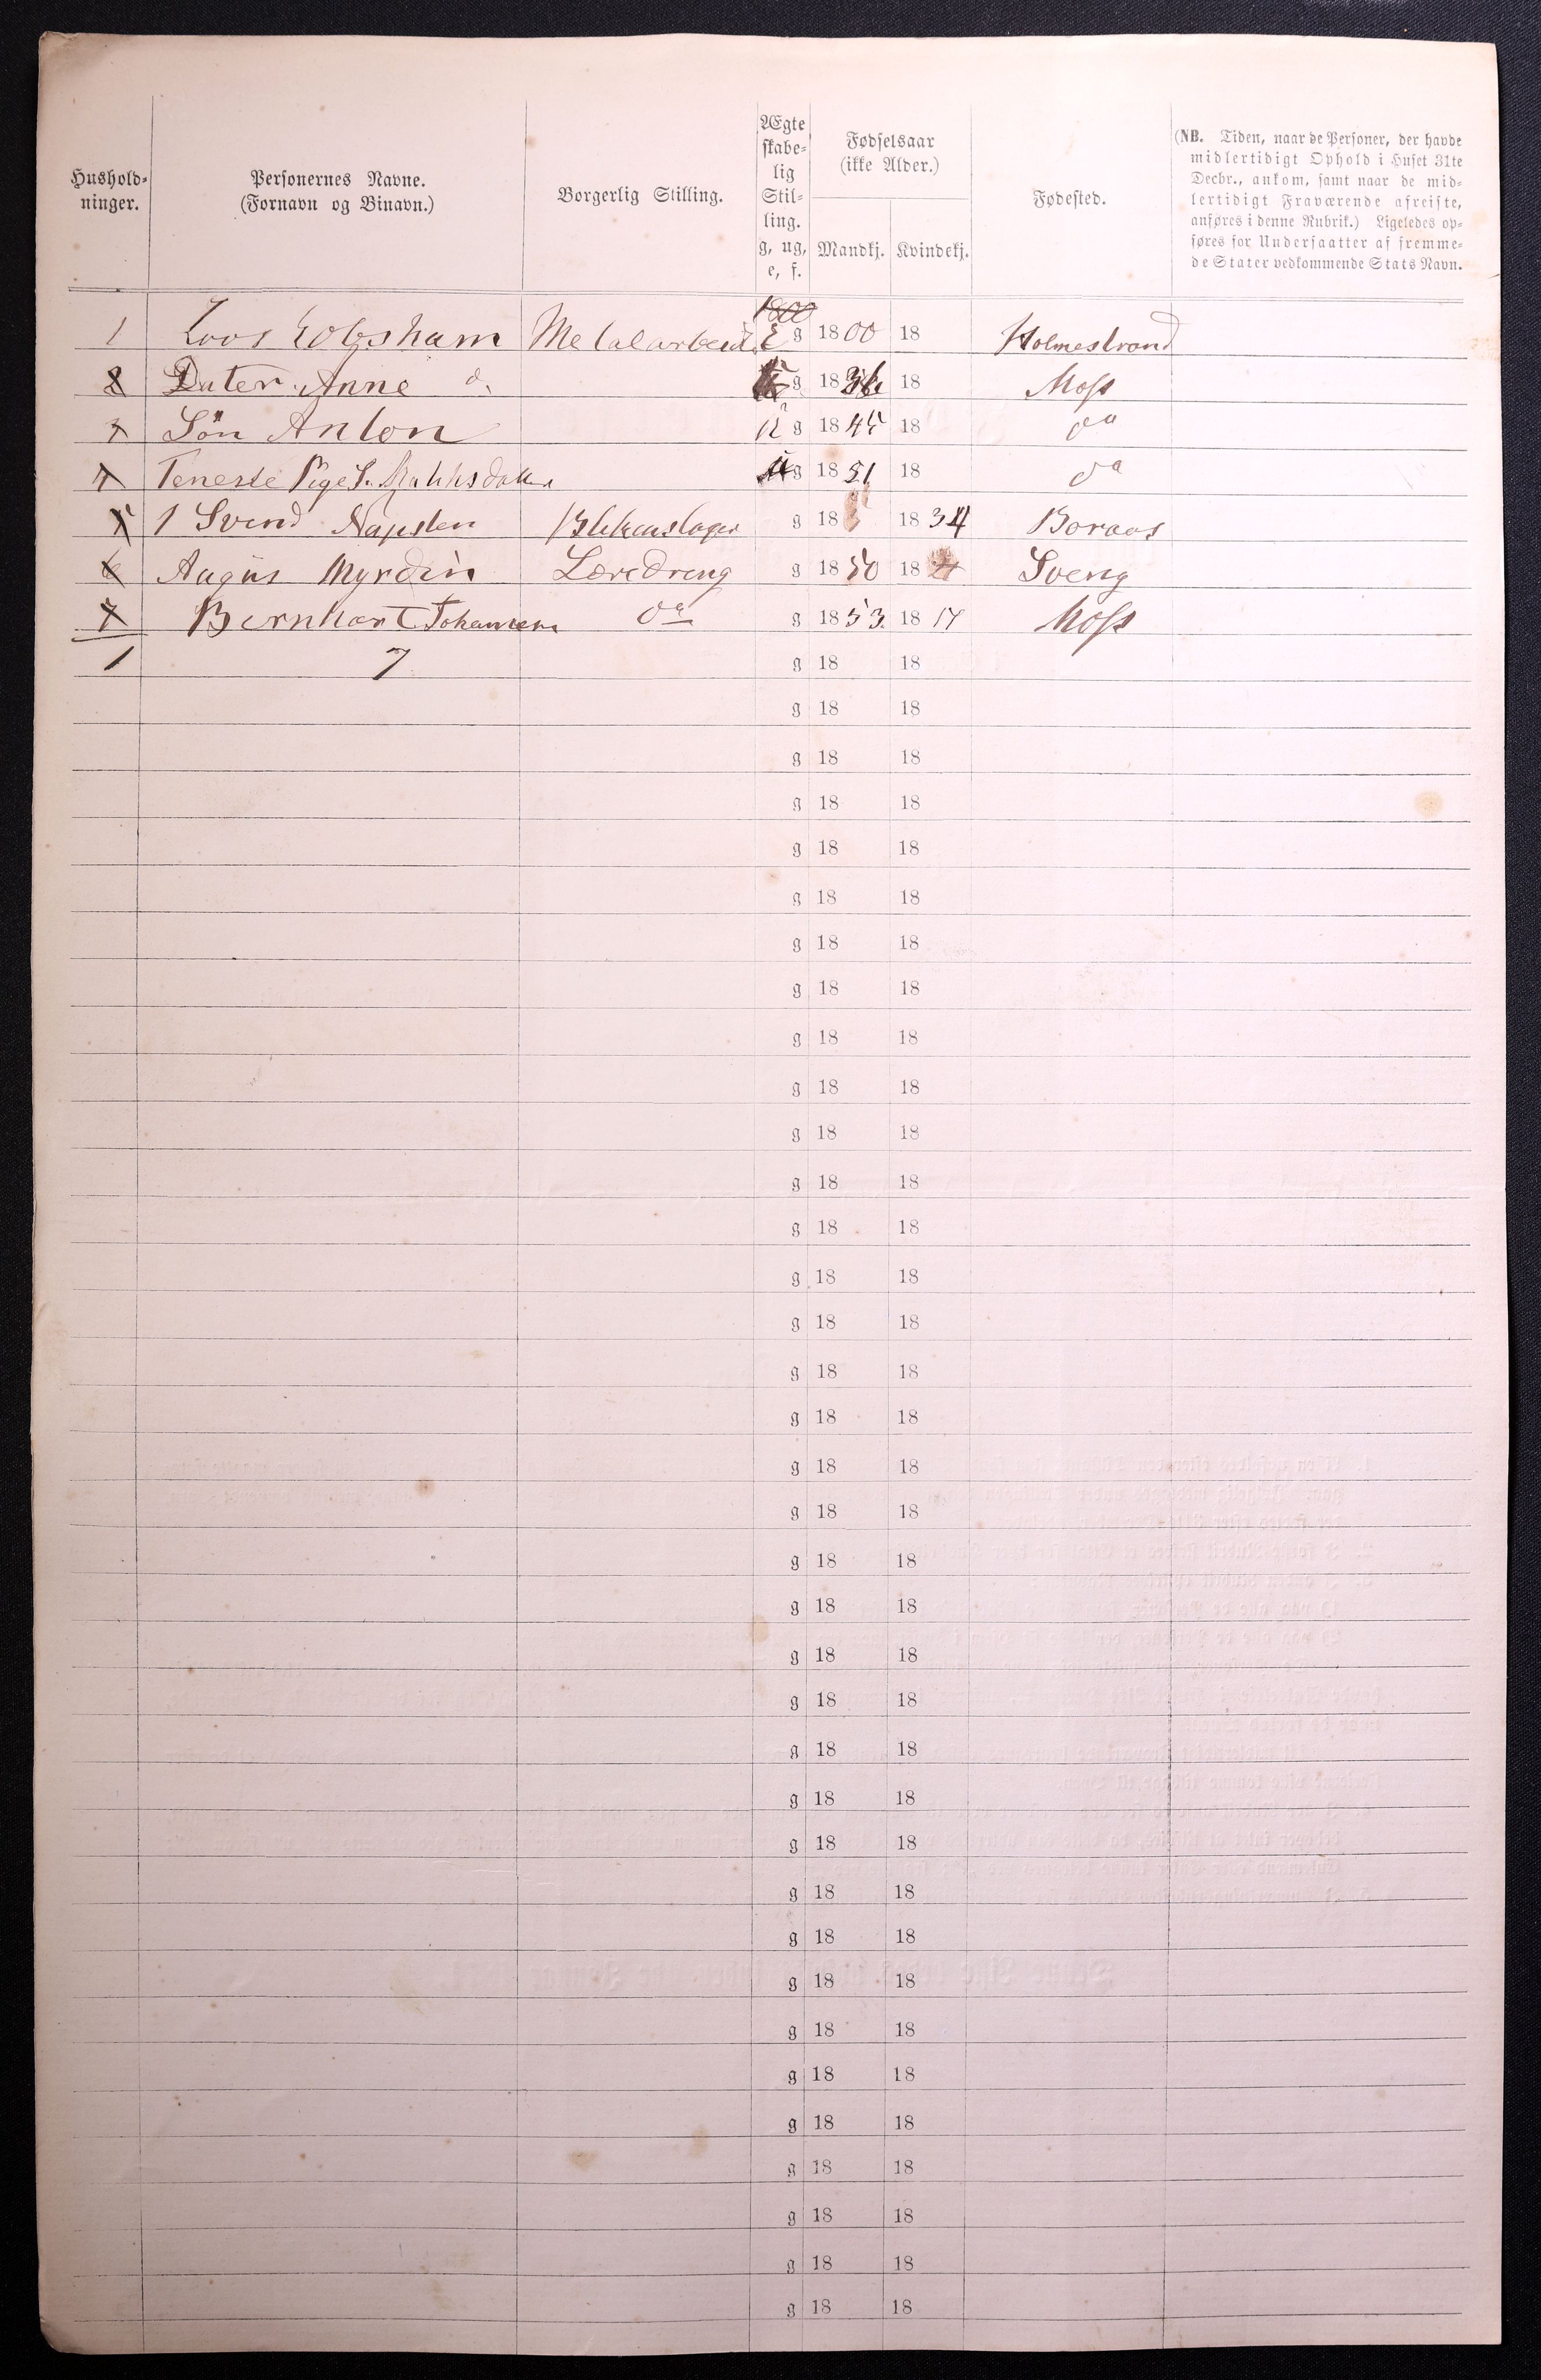 Hushold-
ninger.
Personernes Navne.
(Fornavn og Binavn.)
Borgerlig Stilling.
Ægte
skabe-
lig
Stil-
ling.
g, ug,
e, f.
Fødselsaar
(ikke Alder.)
Mandkj.
Kvindekj.
Fødested.
(NB. Tiden, naar de Personer, der havde
midlertidigt Ophold i Huset 31te
Decbr., ankom, samt naar de mid-
lertidigt Fraværende afreiste,
anføres i denne Rubrik.) Ligeledes op-
føres for Undersaatter af fremme-
de Stater vedkommende Stats Navn.
1800
1 E g 1800 18 Holmestrand
2 Dater Anne d. g 1836 18 Moss
3 Sön Anton u g 1845 18 do
4 Teneste Pige S. u g 1851 18 da
5 1 Svend g 18 1834 Boraas
6 August Myrdin Læredreng g 1850 18 Sverig
7 Bernhart Johansen do g 1853. 18 17 Moss
1 7 g 18 18
g 18 18
g 18 18
g 18 18
g 18 18
g 18 18
g 18 18
g 18 18
g 18 18
g 18 18
g 18 18
g 18 18
g 18 18
g 18 18
g 18 18
g 18 18
g 18 18
g 18 18
g 18 18
g 18 18
g 18 18
g 18 18
g 18 18
g 18 18
g 18 18
g 18 18
g 18 18
g 18 18
g 18 18
g 18 18
g 18 18
g 18 18
g 18 18
g 18 18
g 18 18
g 18 18